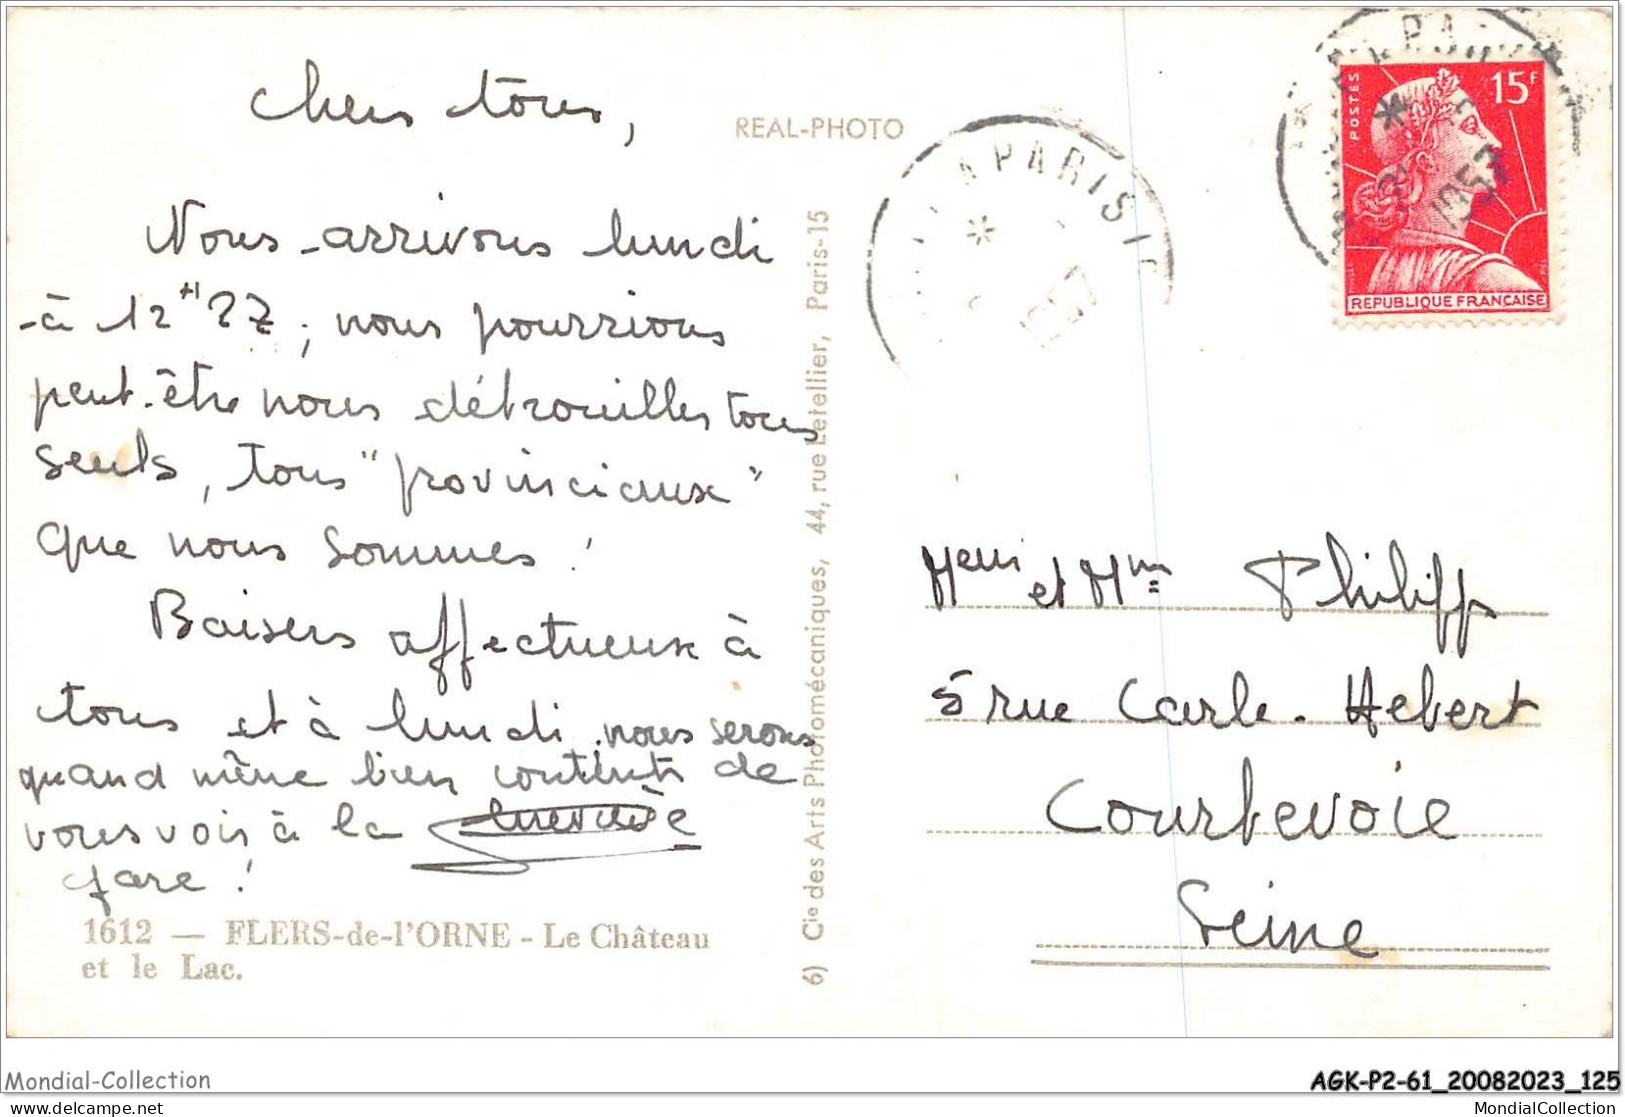 Chers tous,
Nous arrivons lundi
à 12H27, nous pourrions
peut-être nous détrouilles tous
seuls, tous "provinciaux"
que nous sommes !
Baisers affectueux à
tous et à lundi, nous serons
quand même bien contents de
vous voir à la
gare !
1612 — FLERS-de-l'ORNE - Le Château
et le Lac.
REAL-PHOTO
6) Cie des Arts Photomécaniques, 44, rue Letellier, Paris-15
A PARIS
1957
POSTES
15F
1957
REPUBLIQUE FRANÇAISE
et Mme Philipp
5 rue Carle-Hebert
Courbevoie
Seine
Mondial-Collection
AGK-P2-61_20082023_125
delcampe.net
MondialCollection